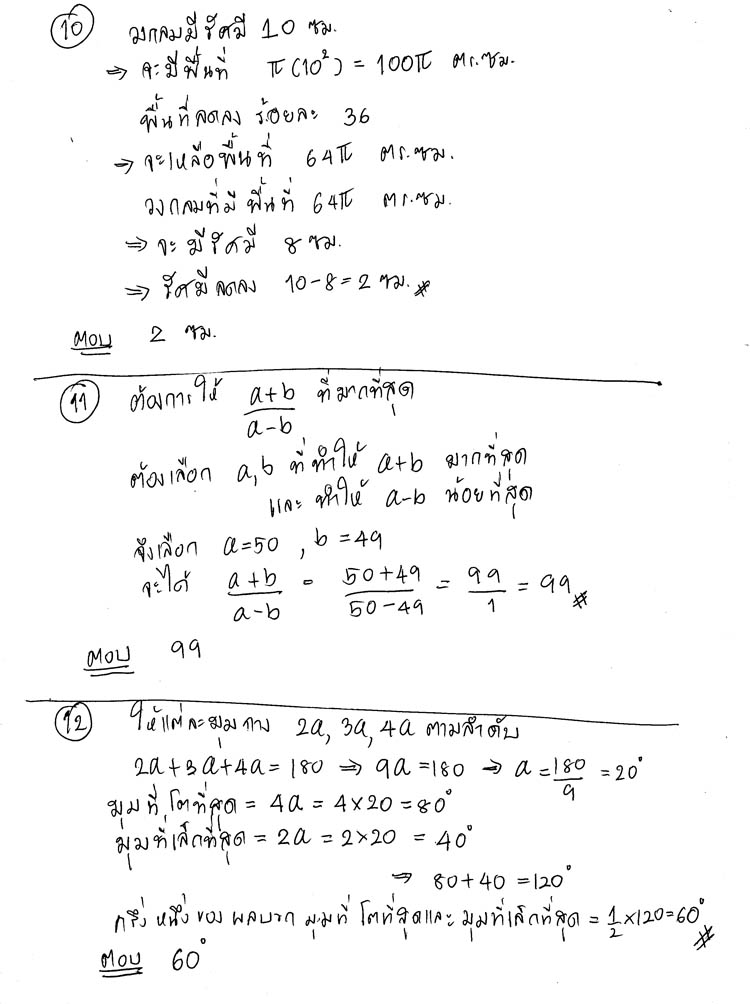 (10) วงกลมมีรัศมี 10 ซม.
⇒ จะมีพื้นที่ π(10²) = 100π ตร.ซม.
พื้นที่ลดลง ร้อยละ 36
⇒ จะเหลือพื้นที่ 64π ตร.ซม.
วงกลมที่มีพื้นที่ 64π ตร.ซม.
⇒ จะมีรัศมี 8 ซม.
⇒ รัศมีลดลง 10-8=2 ซม. #
ตอบ 2 ซม.
(11) ต้องการให้ (a+b)/(a-b) ที่มากที่สุด
ต้องเลือก a,b ที่ทำให้ a+b มากที่สุด
และ ทำให้ a-b น้อยที่สุด
จึงเลือก a=50 , b=49
จะได้ (a+b)/(a-b) = (50+49)/(50-49) = 99/1 = 99 #
ตอบ 99
(12) ให้แต่ละมุมกาง 2a, 3a, 4a ตามลำดับ
2a+3a+4a=180 ⇒ 9a=180 ⇒ a=180/9=20°
มุมที่โตที่สุด = 4a = 4×20=80°
มุมที่เล็กที่สุด = 2a = 2×20 = 40°
⇒ 80+40=120°
ครึ่งหนึ่งของผลบวก มุมที่โตที่สุดและมุมที่เล็กที่สุด = 1/2×120=60° #
ตอบ 60°